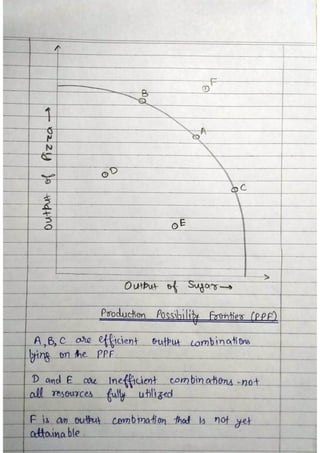 F
B
A
D
C
E
Output of Pizza →
Output of Sugar →
Production Possibility Frontier (PPF)
A, B, C are efficient output combinations
lying on the PPF.
D and E are Inefficient combinations - not
all resources fully utilized
F is an output combination that is not yet
attainable.